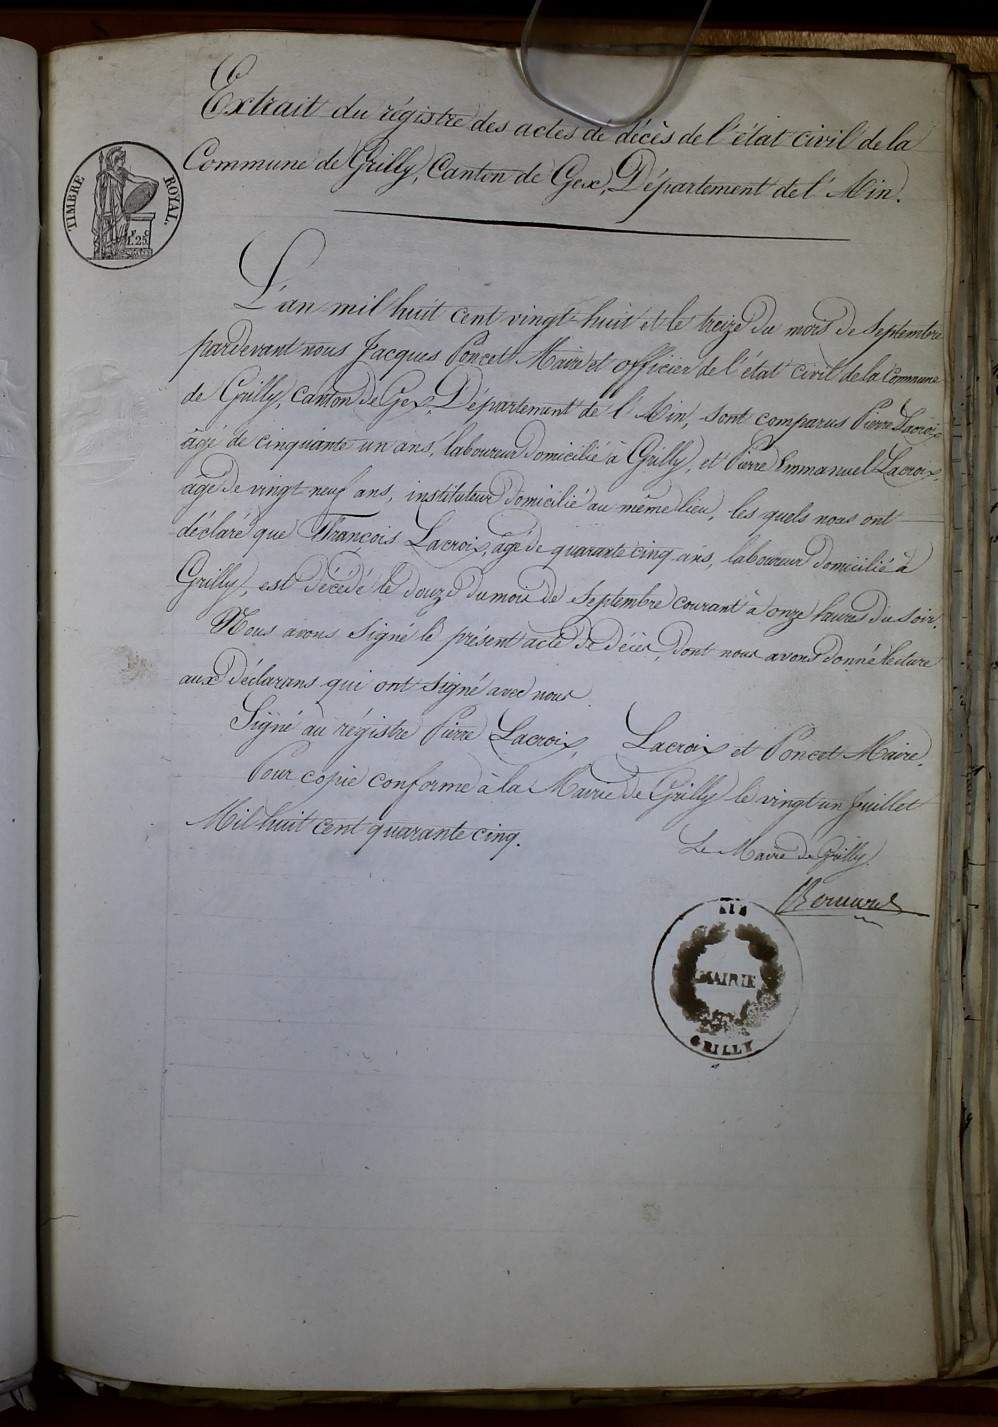 Extrait du régistre des actes de décès de l'état civil de la
Commune de Grilly, Canton de Gex, Département de l'Ain.
TIMBRE ROYAL.
1.F 25.C
L'an mil huit cent vingt-huit et le treize du mois de Septembre
pardevant nous Jacques Poncet Maire et officier de l'état civil de la Commune
de Grilly, Canton de Gex, Département de l'Ain, sont comparus Pierre Lacroix
âgé de cinquante un ans, laboureur domicilié à Grilly, et Pierre Emmanuel Lacroix,
âgé de vingt neuf ans, instituteur domicilié au même lieu, les quels nous ont
déclaré que François Lacroix, âgé de quarante cinq ans, laboureur domicilié à
Grilly, est décédé le douze du mois de Septembre courant à onze heures du soir.
Nous avons signé le présent acte de décès, dont nous avons donné lecture
aux déclarans qui ont signé avec nous.
Signé au régistre Pierre Lacroix, Lacroix et Poncet Maire.
Pour copie conforme à la Mairie de Grilly le vingt un Juillet
Mil huit cent quarante cinq.
Le Maire de Grilly.
MAIRIE
GRILLY